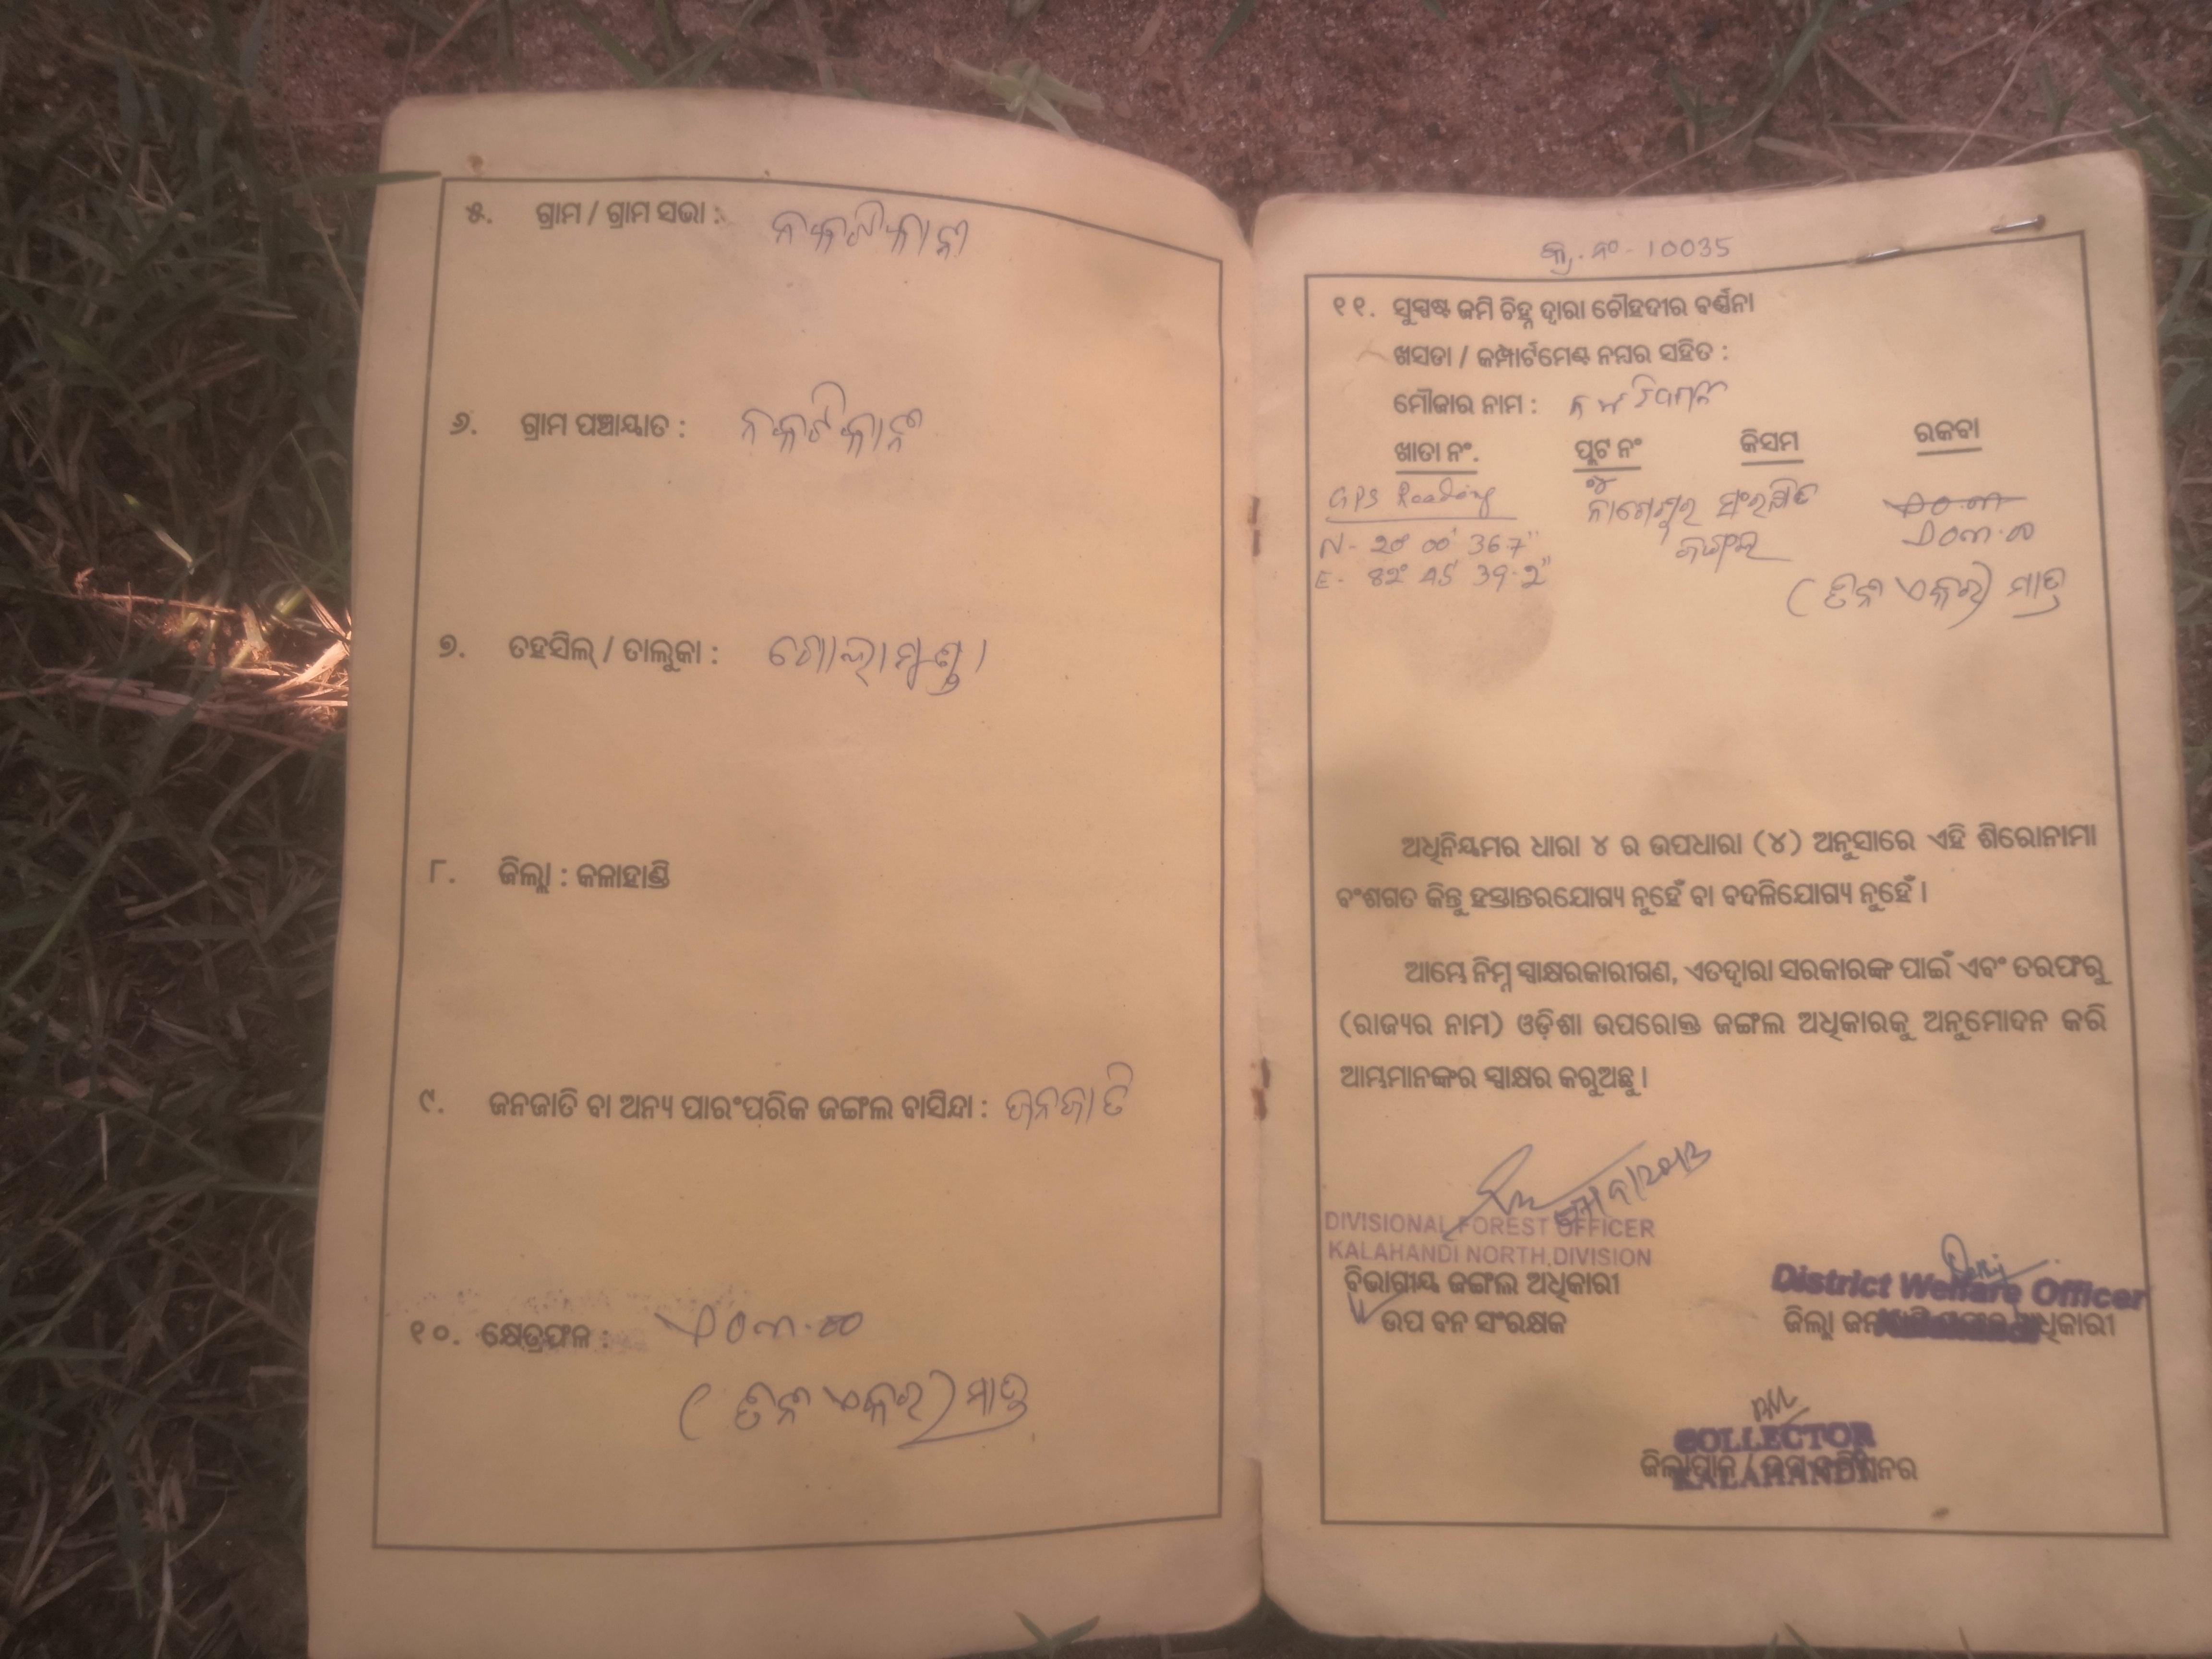 ୫. ଗ୍ରାମ / ଗ୍ରାମ ସଭା : ନକଟିକାନୀ
୬. ଗ୍ରାମ ପଞ୍ଚାୟାତ : ନକଟିକାନୀ
୭. ତହସିଲ୍ / ତାଲୁକା : ଗୋଲାମୁଣ୍ଡା
୮. ଜିଲ୍ଲା : କଳାହାଣ୍ଡି
୯. ଜନଜାତି ବା ଅନ୍ୟ ପାରଂପରିକ ଜଙ୍ଗଲ ବାସିନ୍ଦା : ଜନଜାତି
୧୦. କ୍ଷେତ୍ରଫଳ :
( ତିନି ଏକର ) ମାତ୍ର
କ୍ର. ନଂ - 10035
୧୧. ସୁସ୍ପଷ୍ଟ ଜମି ଚିହ୍ନ ଦ୍ୱାରା ଚୌହଦୀର ବର୍ଣ୍ଣନା
ଖସଡା / କମ୍ପାର୍ଟମେଣ୍ଟ ନମ୍ବର ସହିତ :
ମୌଜାର ନାମ :
ଖାତା ନଂ. ପ୍ଲଟ ନଂ କିସମ ରକବା
GPS Reading ନାଗେଶ୍ୱର ସଂରକ୍ଷିତ
ଜଙ୍ଗଲ
N - 20° 00' 36.7"
E - 82° 45' 39.2"
( ତିନି ଏକର ) ମାତ୍ର
ଅଧିନିୟମର ଧାରା ୪ ର ଉପଧାରା (୪) ଅନୁସାରେ ଏହି ଶିରୋନାମା
ବଂଶଗତ କିନ୍ତୁ ହସ୍ତାନ୍ତରଯୋଗ୍ୟ ନୁହେଁ ବା ବଦଳିଯୋଗ୍ୟ ନୁହେଁ ।
ଆମ୍ଭେ ନିମ୍ନ ସ୍ୱାକ୍ଷରକାରୀଗଣ, ଏତଦ୍ୱାରା ସରକାରଙ୍କ ପାଇଁ ଏବଂ ତରଫରୁ
(ରାଜ୍ୟର ନାମ) ଓଡ଼ିଶା ଉପରୋକ୍ତ ଜଙ୍ଗଲ ଅଧିକାରକୁ ଅନୁମୋଦନ କରି
ଆମ୍ଭମାନଙ୍କର ସ୍ୱାକ୍ଷର କରୁଅଛୁ ।
DIVISIONAL FOREST OFFICER
KALAHANDI NORTH, DIVISION
ବିଭାଗୀୟ ଜଙ୍ଗଲ ଅଧିକାରୀ
ଉପ ବନ ସଂରକ୍ଷକ
District Welfare Officer
ଜିଲ୍ଲା ଅଧିକାରୀ
COLLECTOR
KALAHANDI